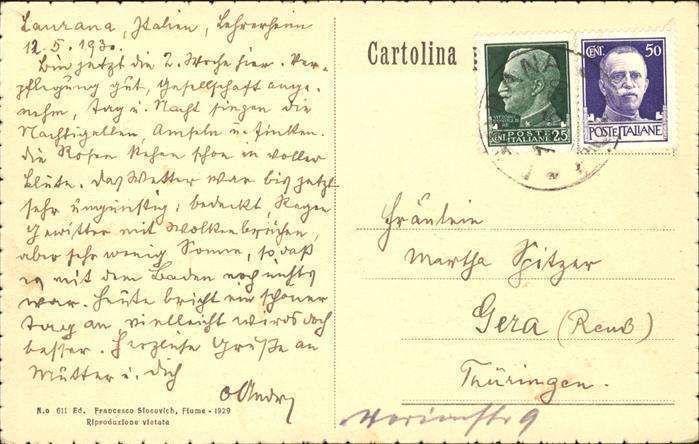 Laurana, Italien, Lehrerheim
12.5.1930.
Bin jetzt die 2. Woche hier. Ver-
pflegung gut, Gesellschaft ange-
nehm, Tag u. Nacht singen die
Nachtigallen, Amseln u. Finken.
die Rosen stehen schon in voller
Blüte. Das Wetter war bis jetzt
sehr ungünstig: bedeckt, Regen
Gewitter mit Wolkenbrüchen,
aber sehr wenig Sonne, so daß
es mit dem Baden noch nichts
war. Heute bricht ein schöner
Tag an, vielleicht wirds doch
besser. Herzliche Grüße an
Mutter u. Dich
N.o 611 Ed. Francesco Slocovich, Fiume - 1929
Riproduzione vietata
Cartolina
POSTE ITALIANE
CENT 25
CENT. 50
POSTE ITALIANE
Fräulein
Martha Spitzer
Gera (Reuß)
Thüringen.